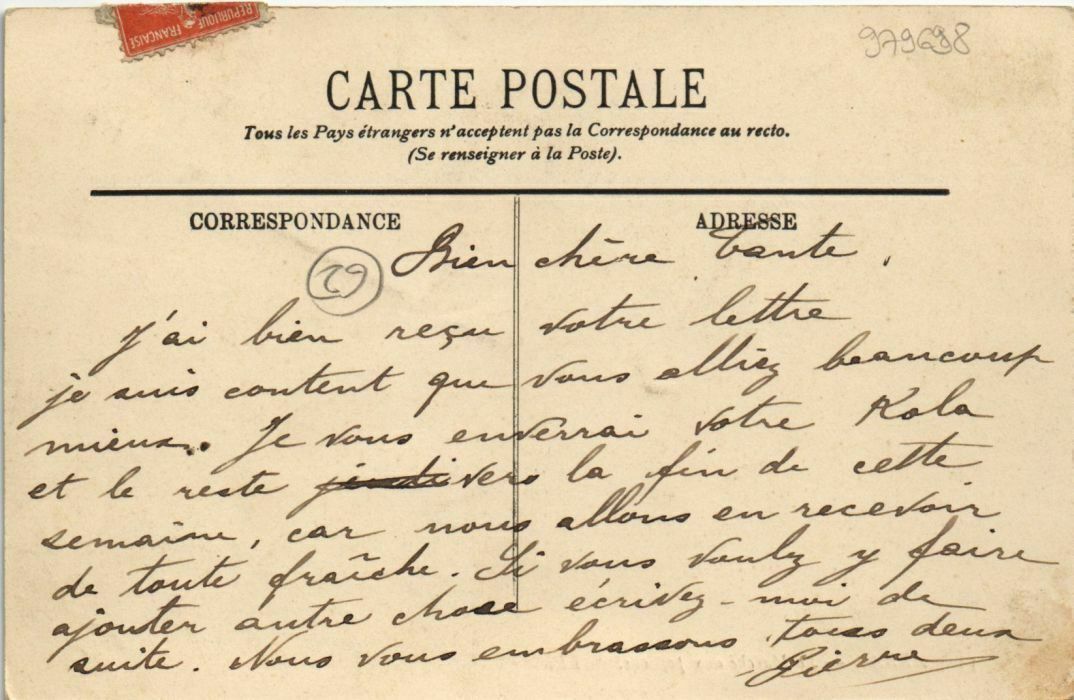 REPUBLIQUE FRANCAISE
979698
CARTE POSTALE
Tous les Pays étrangers n'acceptent pas la Correspondance au recto.
(Se renseigner à la Poste).
CORRESPONDANCE
ADRESSE
29
Bien chère Tante,
J'ai bien reçu votre lettre
je suis content que vous alliez beaucoup
mieux. Je vous enverrai votre Kola
et le reste jeudi vers la fin de cette
semaine, car nous allons en recevoir
de toute fraîche. Si vous voulez y faire
ajouter autre chose écrivez-moi de
suite. Nous vous embrassons tous deux
Pierre